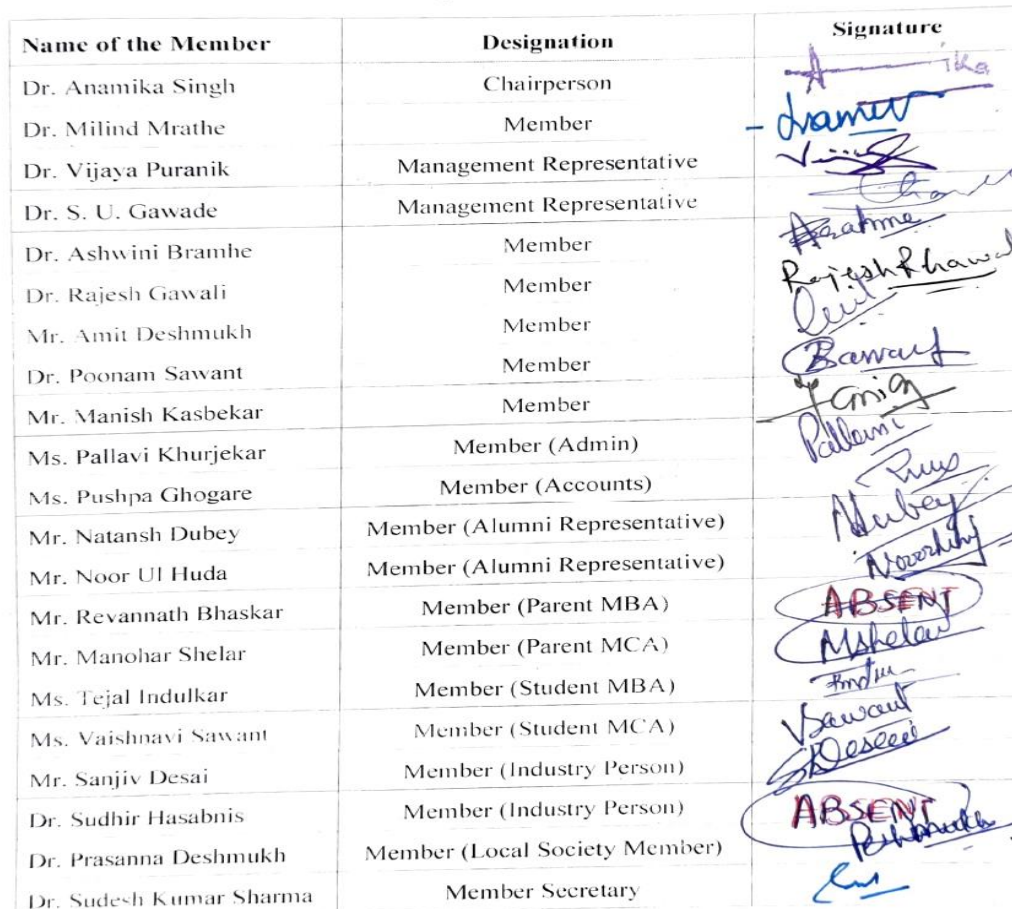 Name of the Member Designation Signature
Dr. Anamika Singh Chairperson A ika
Dr. Milind Mrathe Member
Dr. Vijaya Puranik Management Representative
Dr. S. U. Gawade Management Representative
Dr. Ashwini Bramhe Member
Dr. Rajesh Gawali Member
Mr. Amit Deshmukh Member
Dr. Poonam Sawant Member
Mr. Manish Kasbekar Member
Ms. Pallavi Khurjekar Member (Admin) Pallavi
Ms. Pushpa Ghogare Member (Accounts)
Mr. Natansh Dubey Member (Alumni Representative) NDubey
Mr. Noor Ul Huda Member (Alumni Representative)
Mr. Revannath Bhaskar Member (Parent MBA) ABSENT
Mr. Manohar Shelar Member (Parent MCA) MShelar
Ms. Tejal Indulkar Member (Student MBA)
Ms. Vaishnavi Sawant Member (Student MCA) VSawant
Mr. Sanjiv Desai Member (Industry Person) SDesai
Dr. Sudhir Hasabnis Member (Industry Person) ABSENT
Dr. Prasanna Deshmukh Member (Local Society Member)
Dr. Sudesh Kumar Sharma Member Secretary